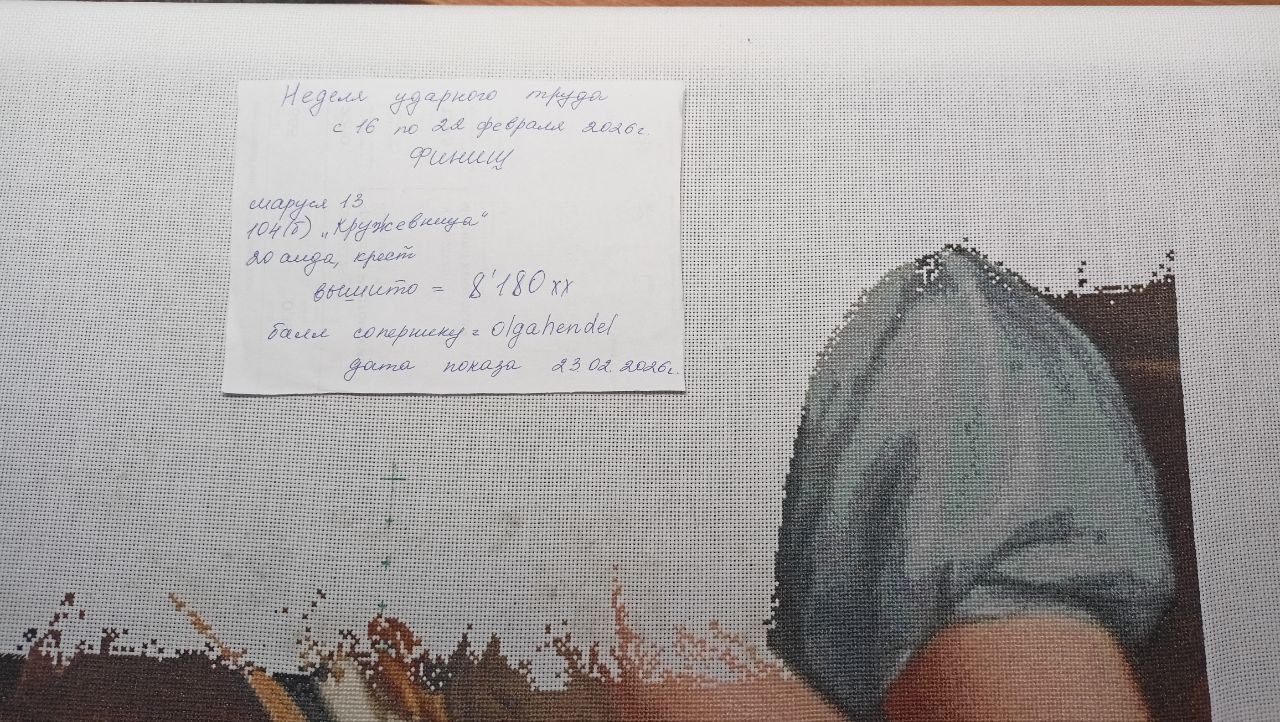 Неделя ударного труда
с 16 по 22 февраля 2026г.
Финиш
маруся 13
104(б) „Кружевница"
20 аида, крест
вышито = 8'180 хх
балл сопернику = olgahendel
дата показа 23.02.2026г.